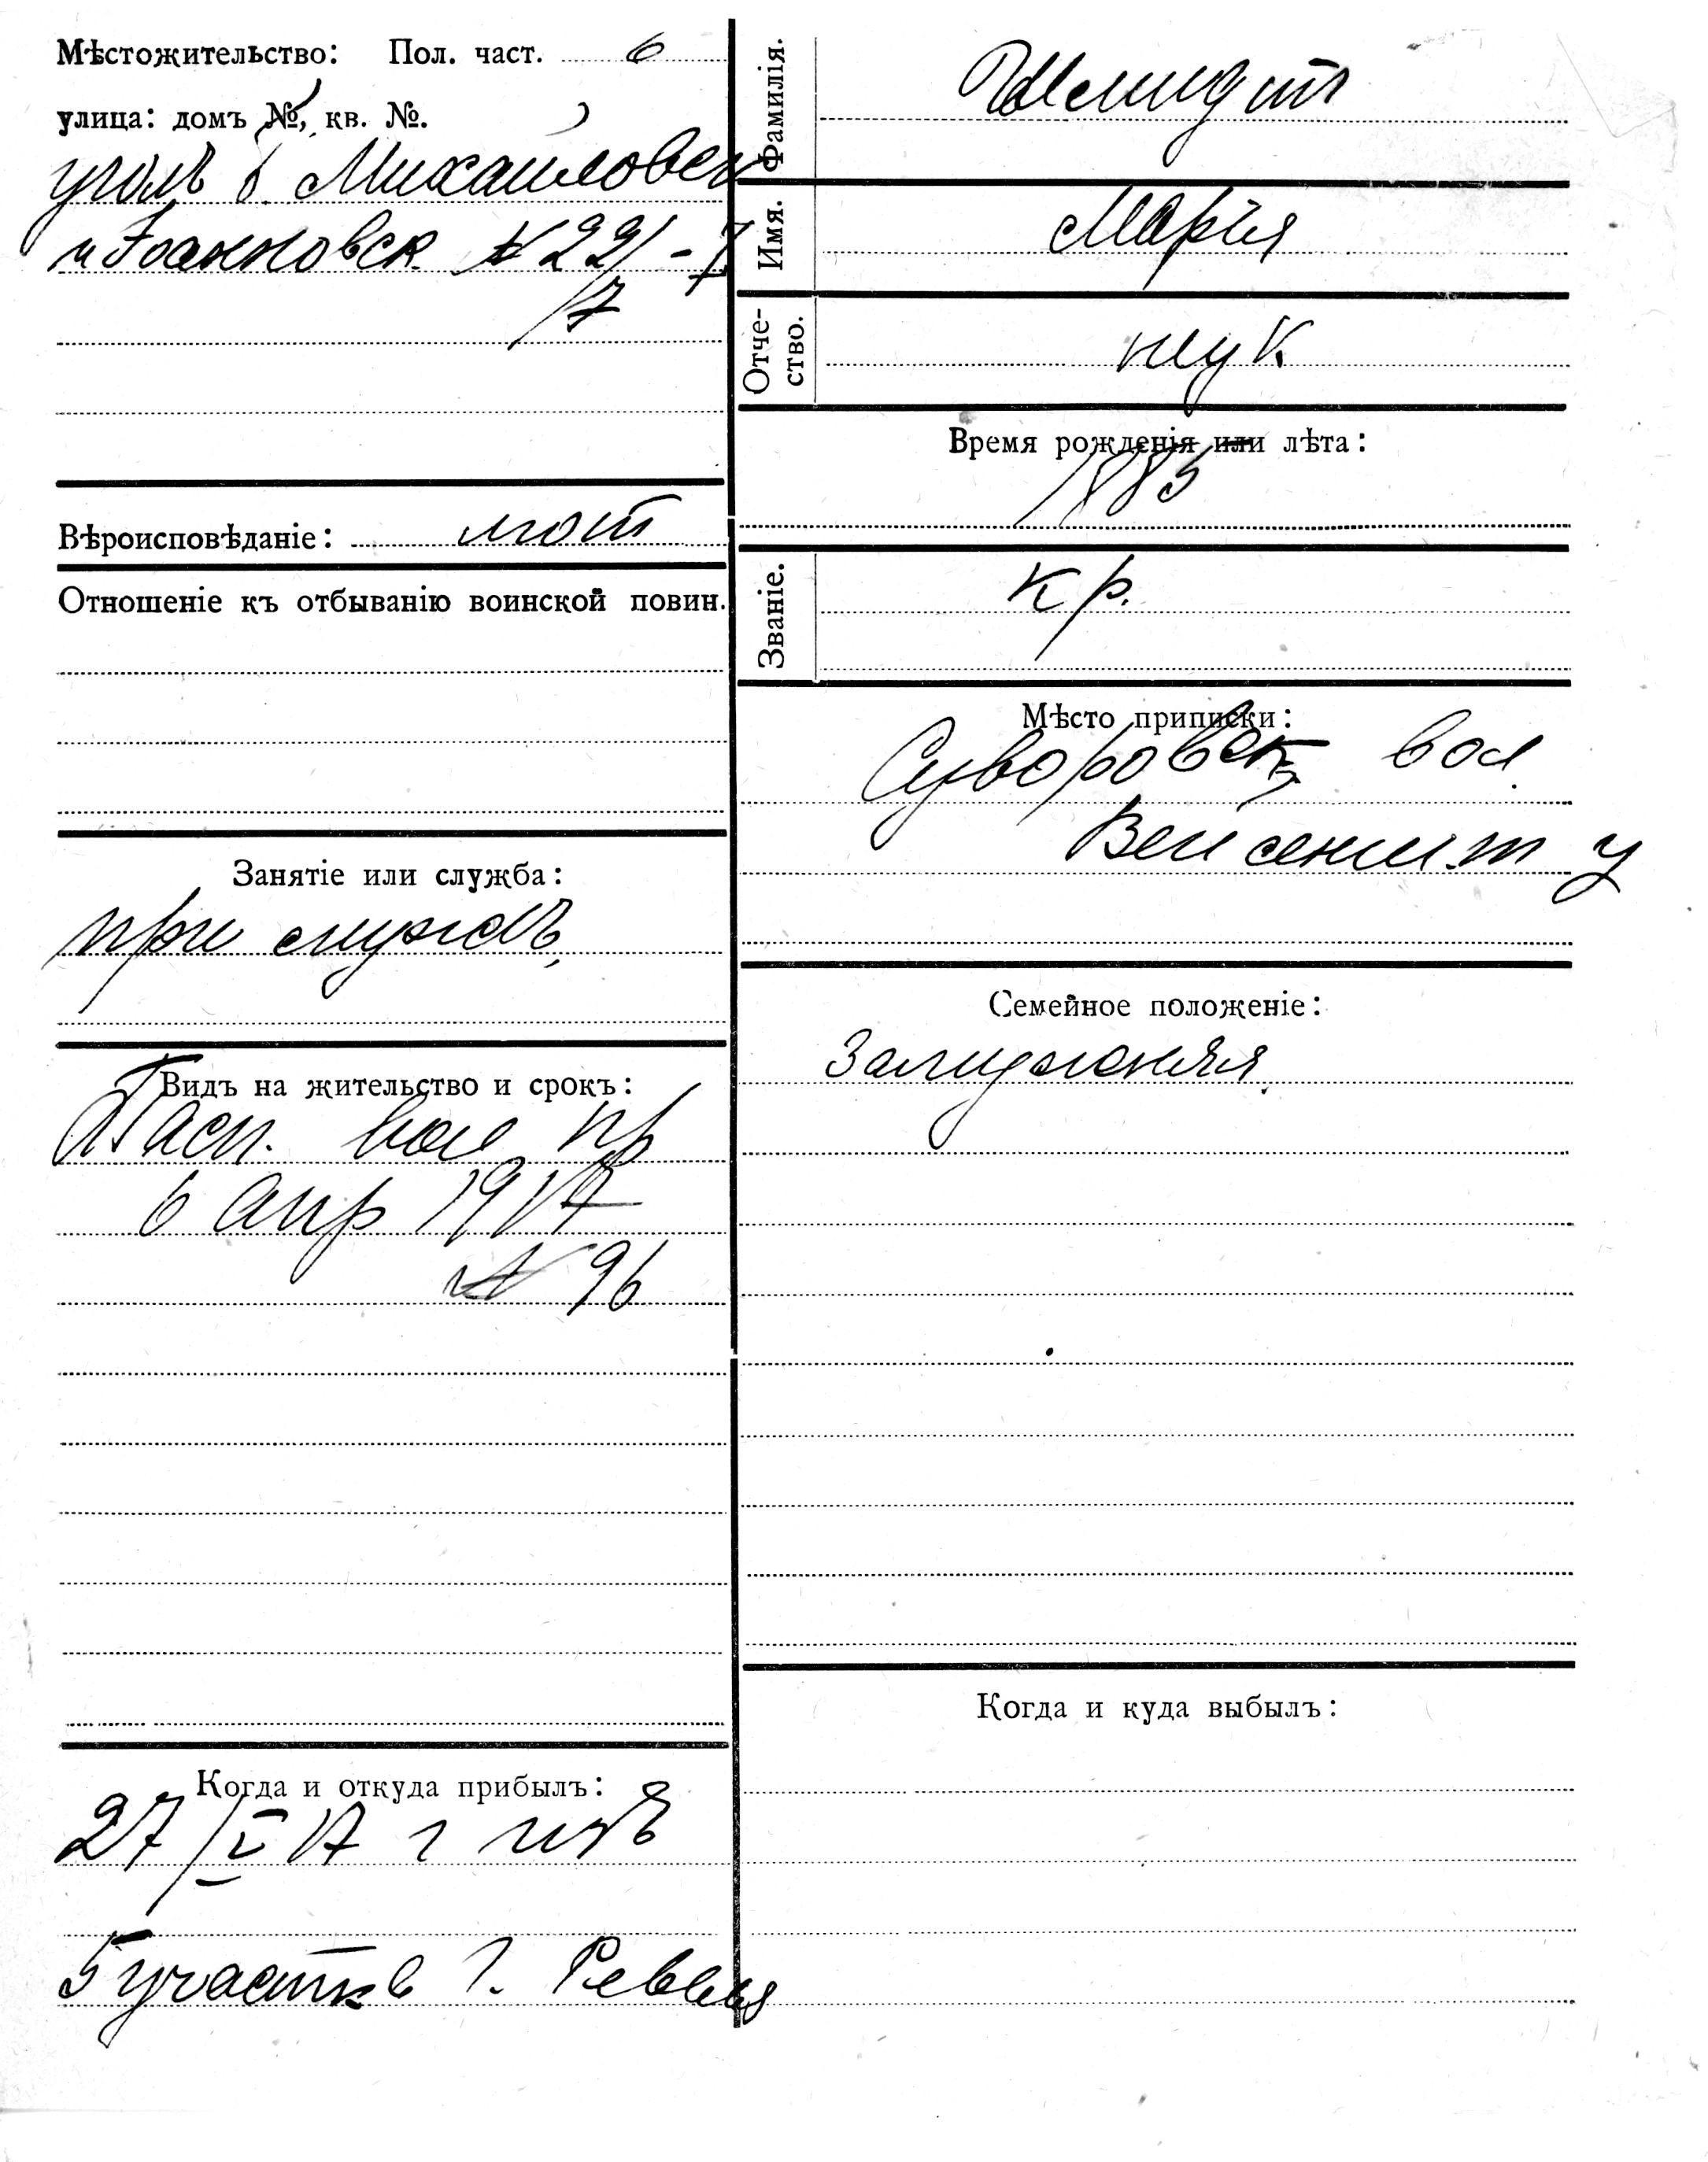 Мѣстожительство: Пол. част. 6
улица: домъ №, кв. №.
уголъ б. Михайловск
и Іоанновск. № 22/17 - 7
Вѣроисповѣданіе: лют
Отношеніе къ отбыванію воинской повин.
Занятіе или служба:
при мужѣ
Видъ на жительство и срокъ:
Пасп. вол пр
6 апр 1917
№ 96
Когда и откуда прибылъ:
27/V 17 г изъ
5 участка г. Ревеля
Фамилія. Шмидт
Имя. Марія
Отче-
ство.
Время рожденія или лѣта:
1885
Званіе. кр.
Мѣсто приписки:
Суворовск вол.
Вейсеншт у
Семейное положеніе:
Замужняя
Когда и куда выбылъ: